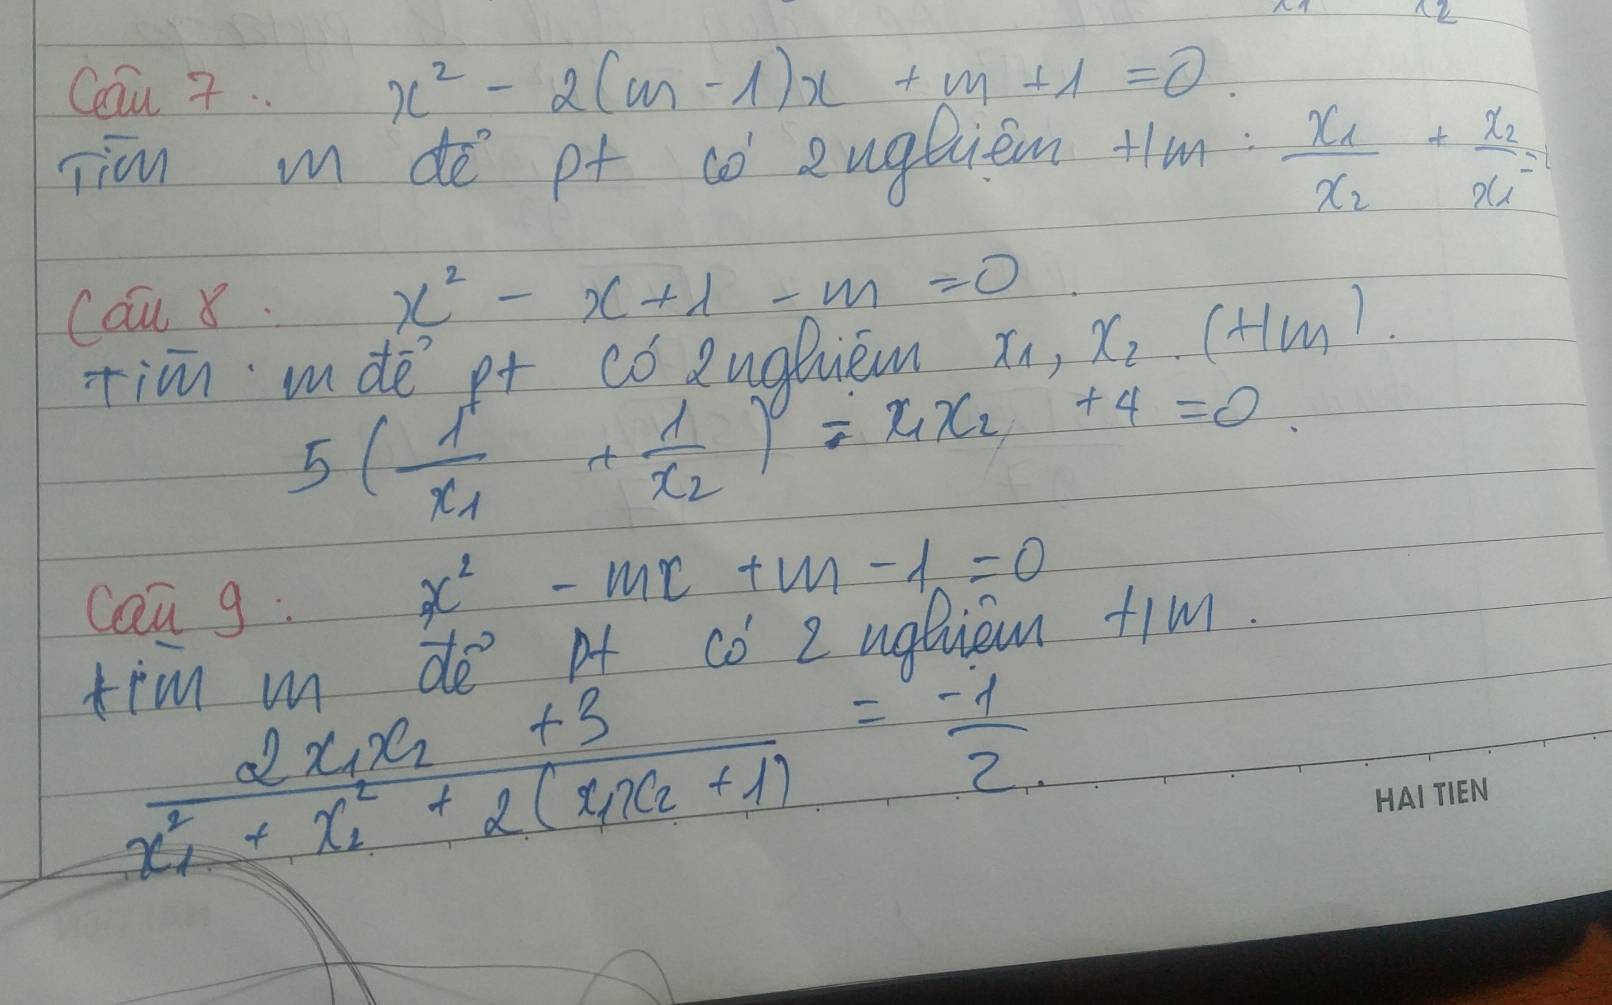 x1 x2
Câu 7: x² - 2(m - 1)x + m + 1 = 0.
Tìm m để pt có 2 nghiệm t/m : x1/x2 + x2/x1 =
Câu 8: x² - x + 1 - m = 0.
tìm m để pt có 2 nghiệm x1, x2. (t/m).
5 ( 1/x1 + 1/x2 ) - x1x2 + 4 = 0.
Câu 9: x² - mx + m - 1 = 0
tìm m để pt có 2 nghiệm t/m.
2x1x2 + 3 / x1² + x2² + 2(x1x2 + 1) = -1/2.
HAI TIEN